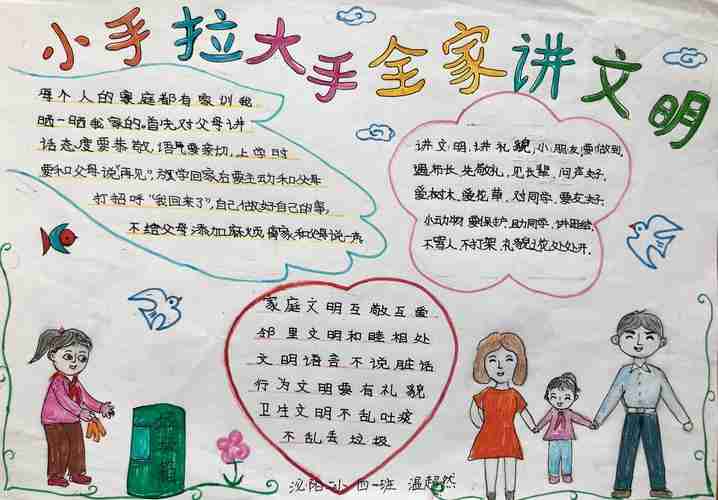 小手拉大手全家讲文明
每个人的家庭都有家训我
晒一晒我家的.首先对父母讲
话态度要恭敬,语气要亲切,上学时
要和父母说"再见",放学回家后要主动和父母
打招呼"我回来了",自己做好自己的事,
不给父母添加麻烦
讲文明,讲礼貌,小朋友,要做到,
遇师长,先敬礼,见长辈,问声好.
爱树木,爱花草,对同学,要友好.
小动物,要保护,助同学,讲团结.
不骂人,不打架,礼貌之花处处开.
家庭文明互敬互爱
邻里文明和睦相处
文明语言不说脏话
行为文明要有礼貌
卫生文明不乱吐痰
不乱丢垃圾
垃圾箱
泌阳一小四一班 温超然